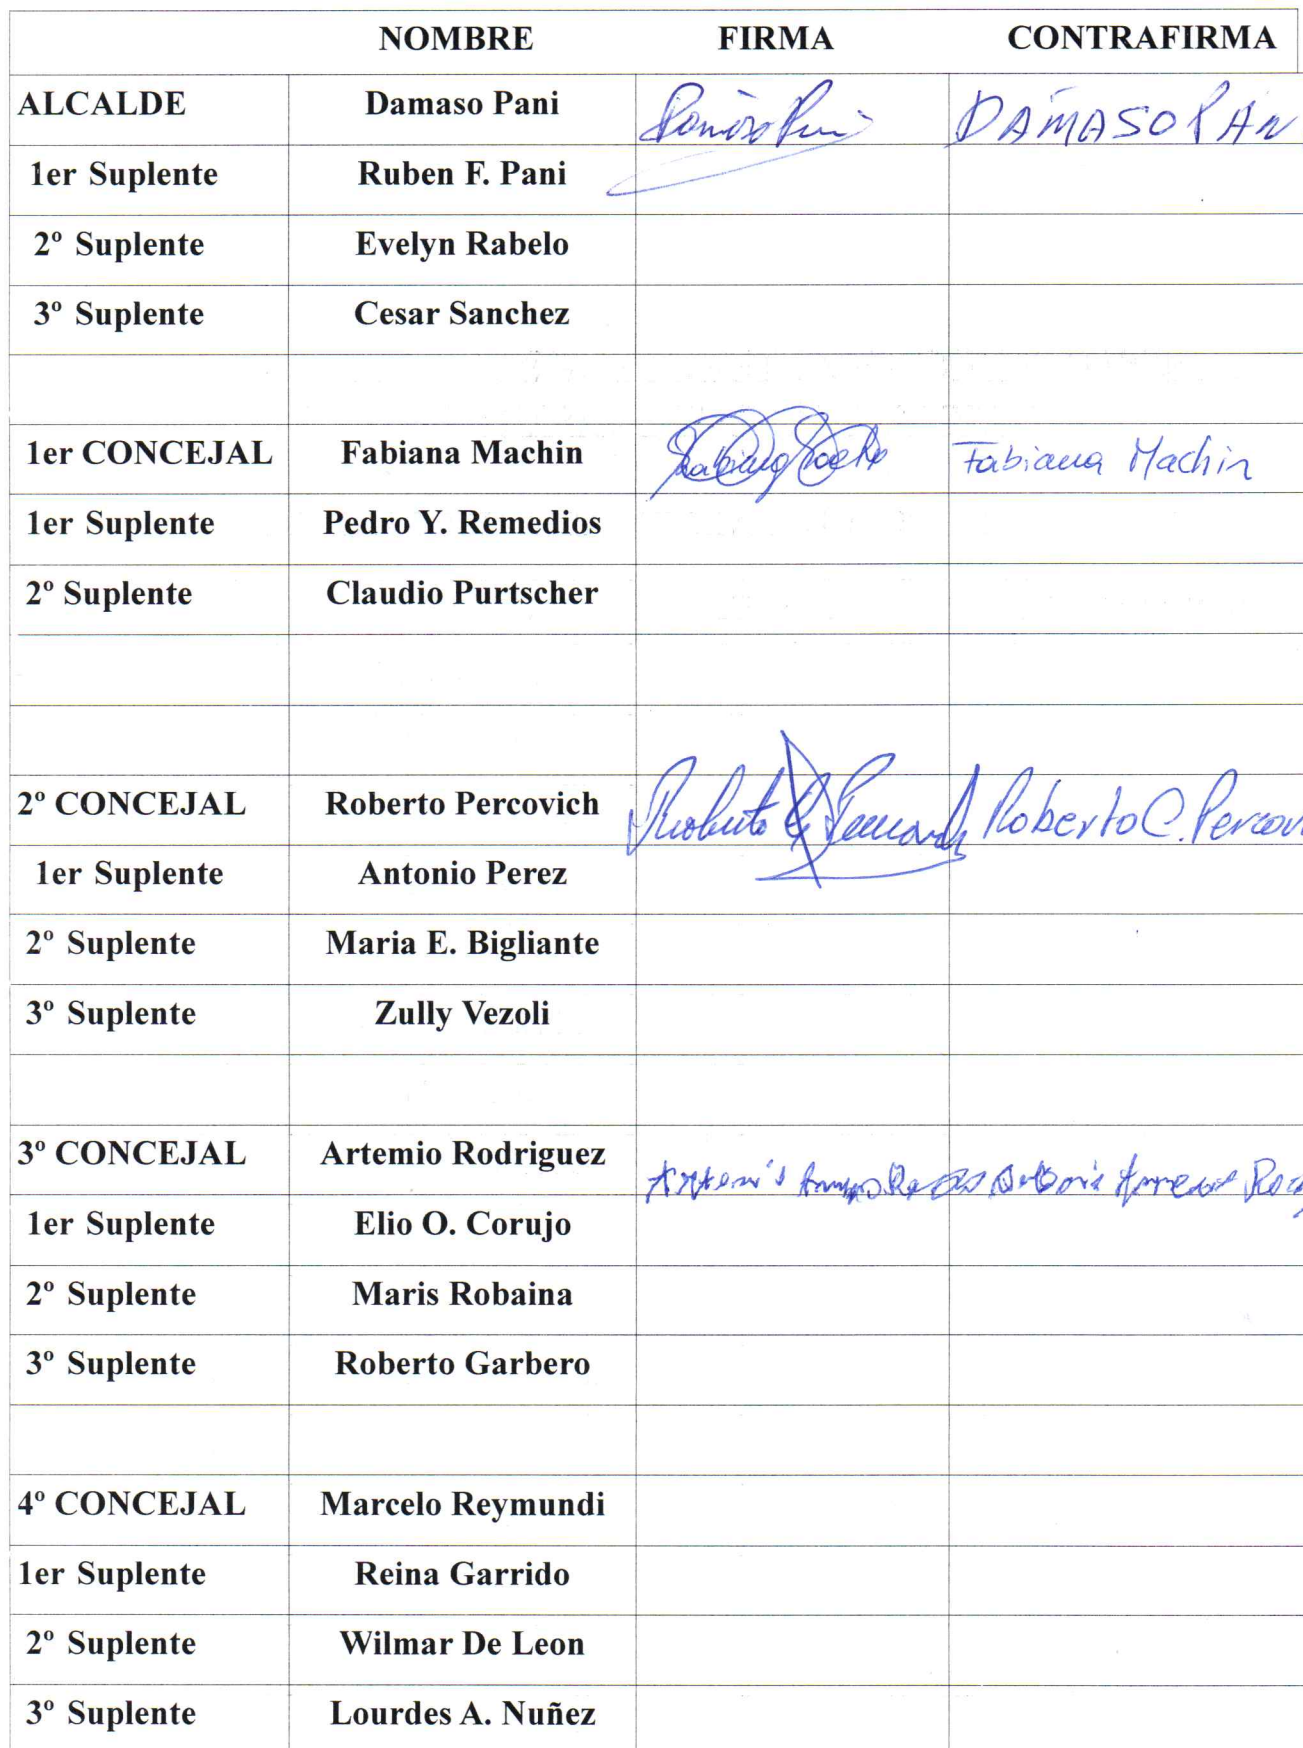 NOMBRE FIRMA CONTRAFIRMA
ALCALDE Damaso Pani Damaso Pani DAMASO PAN
1er Suplente Ruben F. Pani
2º Suplente Evelyn Rabelo
3º Suplente Cesar Sanchez
1er CONCEJAL Fabiana Machin Fabiana Machin
1er Suplente Pedro Y. Remedios
2º Suplente Claudio Purtscher
2º CONCEJAL Roberto Percovich Roberto C. Percov
1er Suplente Antonio Perez
2º Suplente Maria E. Bigliante
3º Suplente Zully Vezoli
3º CONCEJAL Artemio Rodriguez
1er Suplente Elio O. Corujo
2º Suplente Maris Robaina
3º Suplente Roberto Garbero
4º CONCEJAL Marcelo Reymundi
1er Suplente Reina Garrido
2º Suplente Wilmar De Leon
3º Suplente Lourdes A. Nuñez